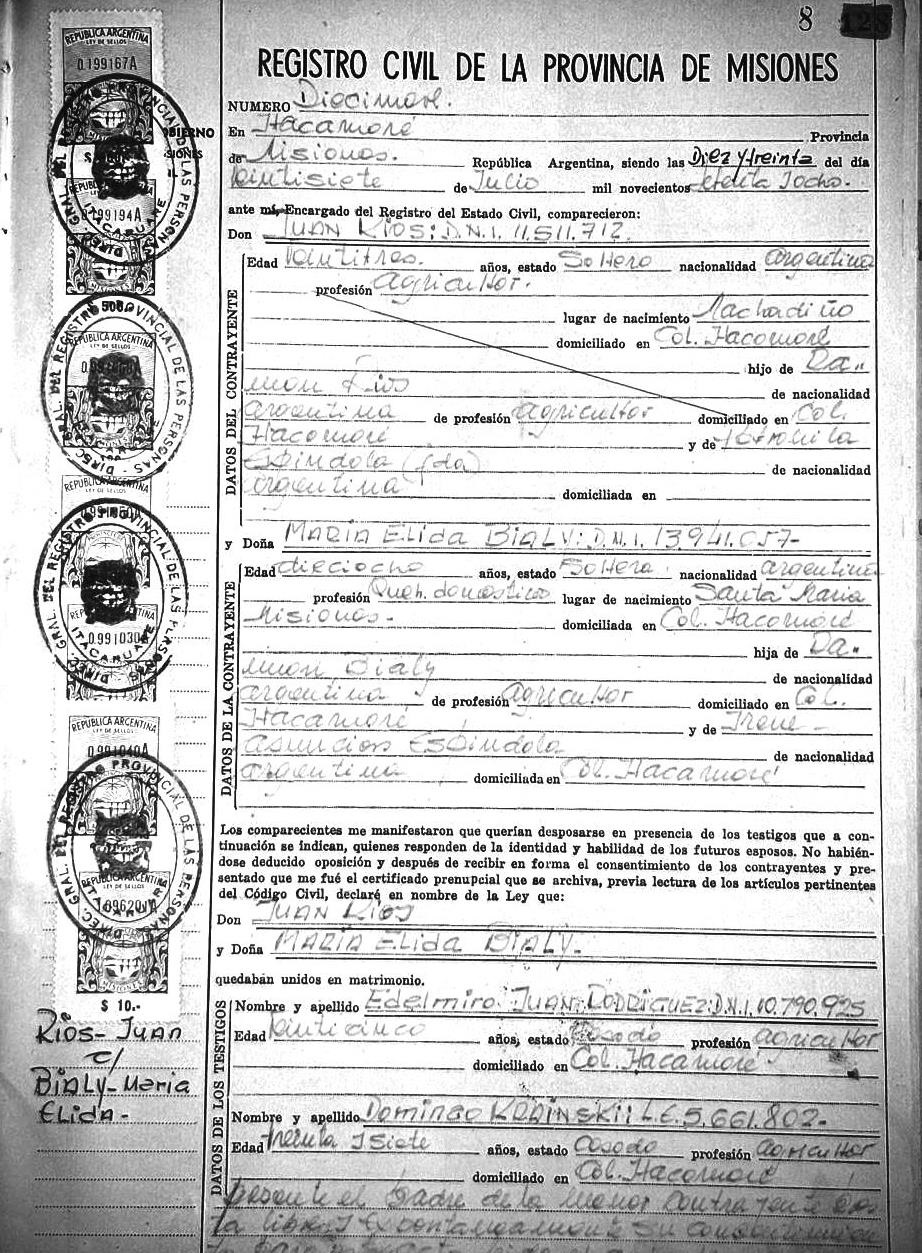 8 128
REGISTRO CIVIL DE LA PROVINCIA DE MISIONES
NUMERO Diecinove.
En Itacaruaré Provincia
de Misiones. República Argentina, siendo las Diez y treinta del día
veintisiete de Julio mil novecientos setenta y ocho.
ante mí, Encargado del Registro del Estado Civil, comparecieron:
Don JUAN RIOS: D.N.I. 11.511.712.
Edad veintitres. años, estado Soltero nacionalidad argentina
profesión agricultor.
lugar de nacimiento
domiciliado en Col. Itacaruaré
hijo de Ra-
mon Rios de nacionalidad
argentina de profesión agricultor domiciliado en Col.
Itacaruaré y de
Espindola (fda) de nacionalidad
argentina domiciliada en
y Doña MARIA ELIDA BIALY: D.N.I. 13.941.057-
Edad dieciocho años, estado Soltera. nacionalidad argentina
profesión Queh. domésticos lugar de nacimiento Santa Maria
Misiones. domiciliado en Col. Itacaruaré
hija de Ra-
mon Bialy de nacionalidad
argentina de profesión agricultor domiciliado en Col.
Itacaruaré y de Irene
asuncion Espindola de nacionalidad
argentina domiciliada en Col. Itacaruaré
Los comparecientes me manifestaron que querían desposarse en presencia de los testigos que a con-
tinuación se indican, quienes responden de la identidad y habilidad de los futuros esposos. No habién-
dose deducido oposición y después de recibir en forma el consentimiento de los contrayentes y pre-
sentado que me fué el certificado prenupcial que se archiva, previa lectura de los artículos pertinentes
del Código Civil, declaré en nombre de la Ley que:
Don JUAN RIOS
y Doña MARIA ELIDA BIALY.-
quedaban unidos en matrimonio.
Nombre y apellido Edelmiro JUAN RODRIGUEZ: D.N.I. 10.790.925
Edad veinticinco años, estado Casado profesión agricultor
domiciliado en Col. Itacaruaré-
Nombre y apellido Domingo KODINSKI: L.E. 5.661.802-
Edad treinta y siete años, estado Casado profesión agricultor
domiciliado en Col. Itacaruaré
presente el padre de la menor contrayente da
DATOS DEL CONTRAYENTE
DATOS DE LA CONTRAYENTE
DATOS DE LOS TESTIGOS
REPUBLICA ARGENTINA
LEY DE SELLOS
0.199167A
0199194A
DIREC. GRAL. DEL REGISTRO PROVINCIAL DE LAS PERSONAS
ITACARUARE
REPUBLICA ARGENTINA
LEY DE SELLOS
DIREC. GRAL. DEL REGISTRO PROVINCIAL DE LAS PERSONAS
REPUBLICA ARGENTINA
DIREC. GRAL. DEL REGISTRO PROVINCIAL DE LAS PERSONAS
0.991030A
ITACARUARE
REPUBLICA ARGENTINA
LEY DE SELLOS
0.991040A
DIREC. GRAL. DEL REGISTRO PROVINCIAL DE LAS PERSONAS
ITACARUARE
$ 10.-
RIOS- JUAN
c/
BIALY-Maria
ELIDA-